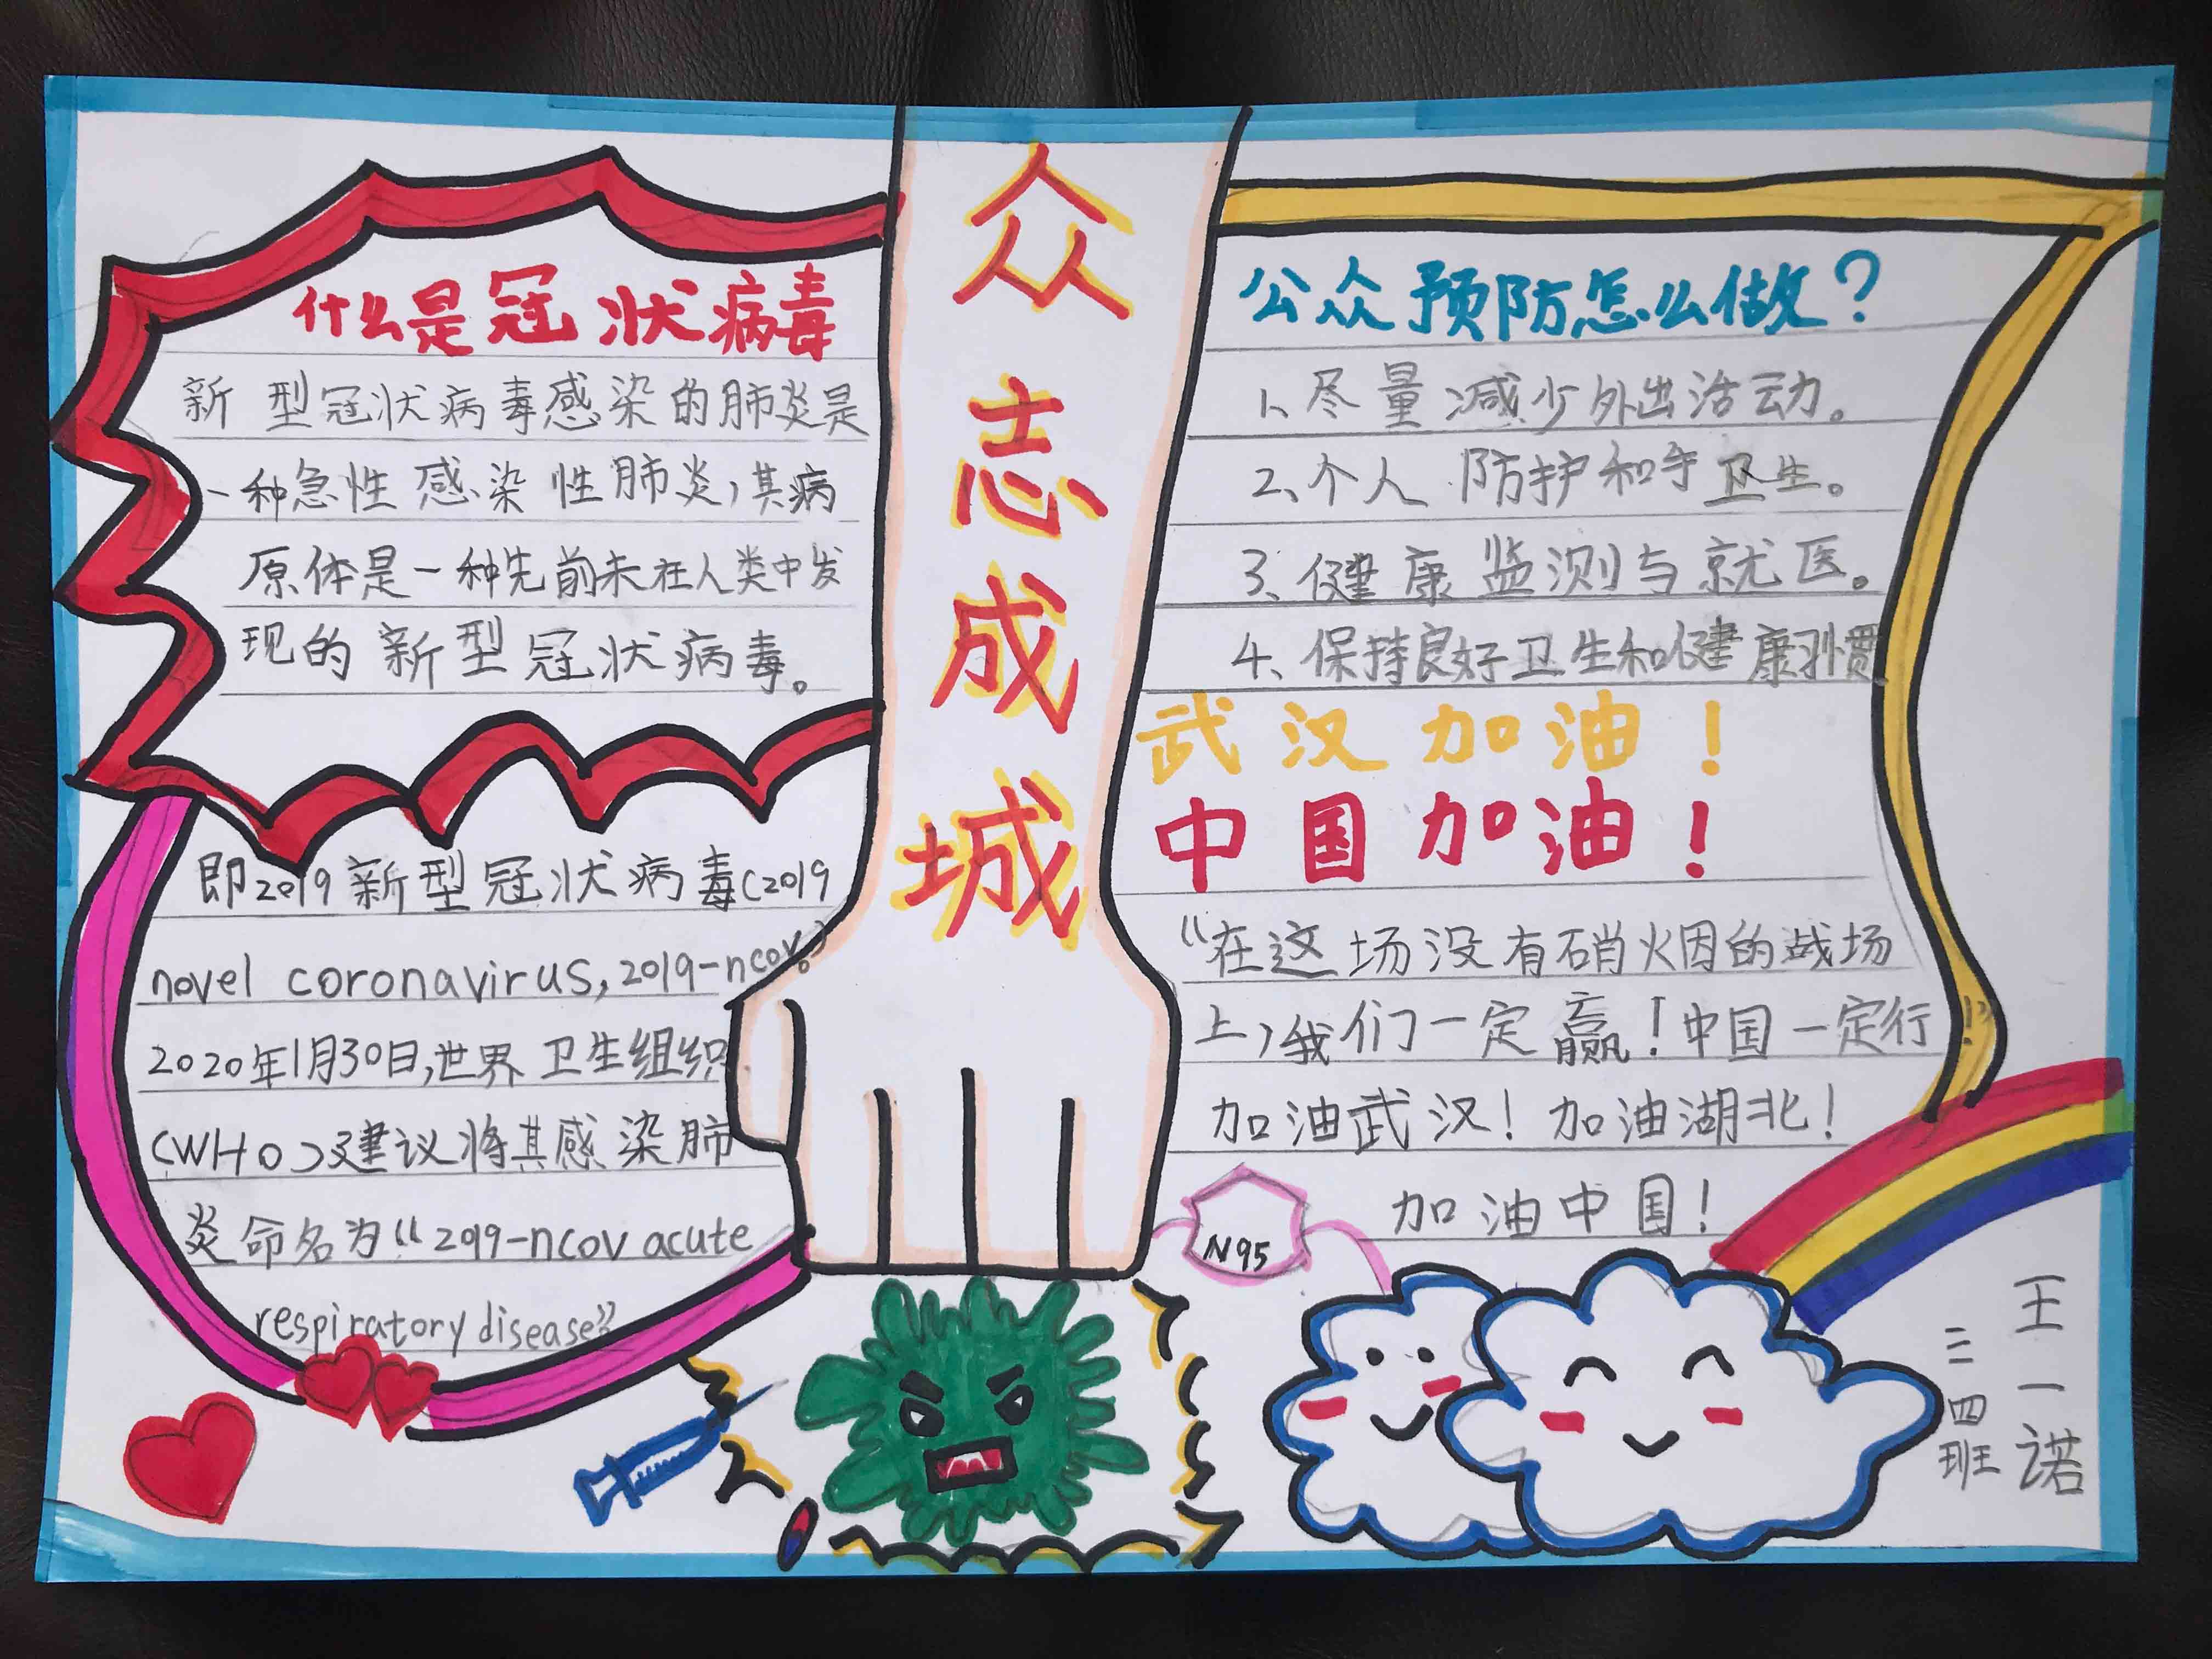 众志成城
什么是冠状病毒
新型冠状病毒感染的肺炎是
一种急性感染性肺炎，其病
原体是一种先前未在人类中发
现的新型冠状病毒。
即2019新型冠状病毒（2019
novel coronavirus，2019-ncov。）
2020年1月30日，世界卫生组织
（WHO）建议将其感染肺
炎命名为“2019-ncov acute
respiratory disease”
公众预防怎么做？
1、尽量减少外出活动。
2、个人防护和手卫生。
3、健康监测与就医。
4、保持良好卫生和健康习惯
武汉加油！
中国加油！
“在这场没有硝烟的战场
上，我们一定赢！中国一定行！”
加油武汉！加油湖北！
加油中国！
N95
二四班
王一诺